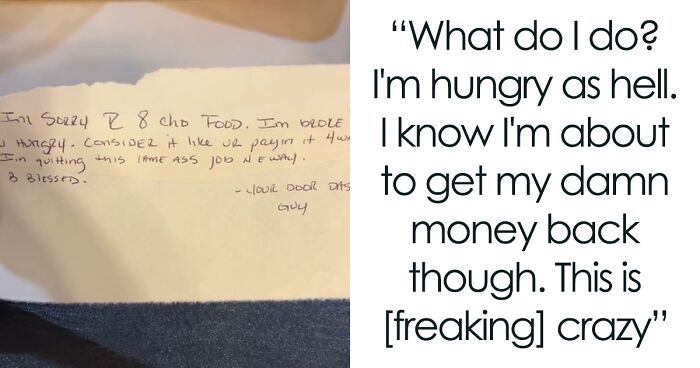 Im SORRY I 8 cho FOOD. Im BROKE
HUNGRY. CONSIDER it like UR payin it 4w
I.m quitting this lAME ASS JOB N E WAY.
B BlESSED.
- YOUR DOOR DAS
GUY
“What do I do?
I'm hungry as hell.
I know I'm about
to get my damn
money back
though. This is
[freaking] crazy”